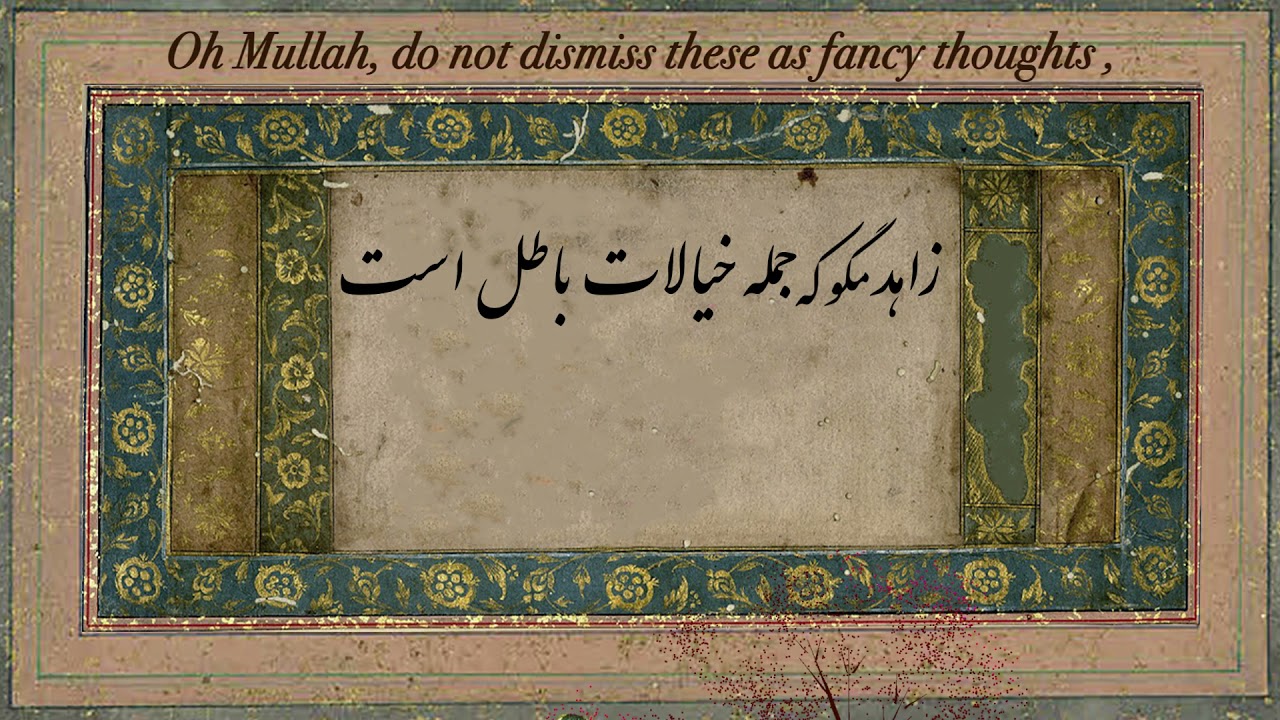 Oh Mullah, do not dismiss these as fancy thoughts ,
زاهد مگو که جمله خیالات باطل است